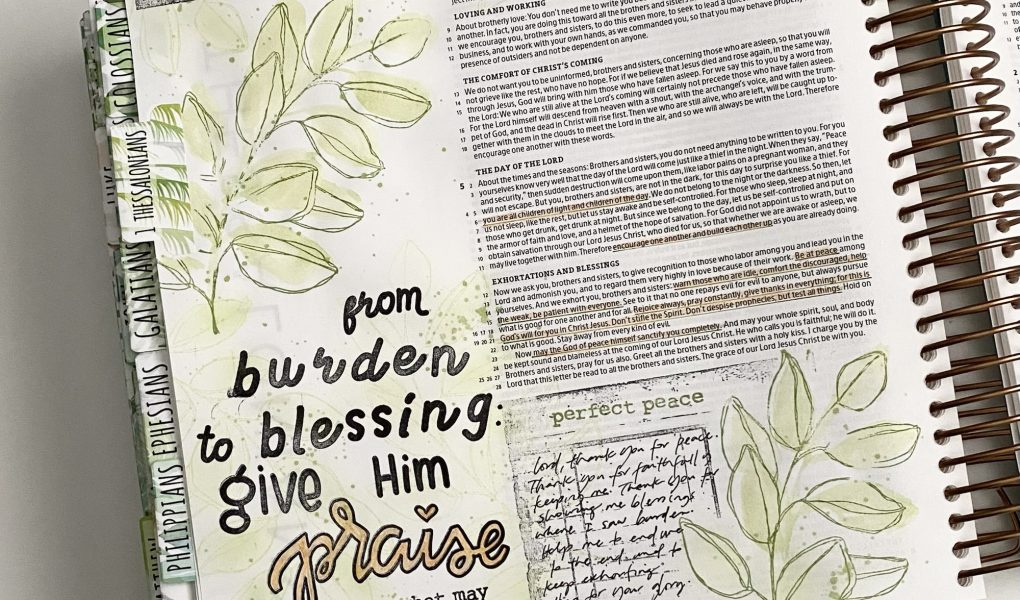 COLOSSIANS
1 THESSALONIANS
GALATIANS
EPHESIANS
PHILIPPIANS
from
burden
to blessing:
give Him
praise
LOVING AND WORKING
9 About brotherly love: You don't need me to write you
10 another. In fact, you are doing this toward all the brothers and
11 we encourage you, brothers and sisters, to do this even more, to seek to lead a
12 business, and to work with your own hands, as we commanded you, so that you may behave properly
presence of outsiders and not be dependent on anyone.
THE COMFORT OF CHRIST'S COMING
13 We do not want you to be uninformed, brothers and sisters, concerning those who are asleep, so that you will
14 not grieve like the rest, who have no hope. For if we believe that Jesus died and rose again, in the same way,
15 through Jesus, God will bring with him those who have fallen asleep. For we say this to you by a word from
the Lord: We who are still alive at the Lord's coming will certainly not precede those who have fallen asleep.
16 For the Lord himself will descend from heaven with a shout, with the archangel's voice, and with the trum-
17 pet of God, and the dead in Christ will rise first. Then we who are still alive, who are left, will be caught up to-
18 gether with them in the clouds to meet the Lord in the air, and so we will always be with the Lord. Therefore
encourage one another with these words.
THE DAY OF THE LORD
5 2 About the times and the seasons: Brothers and sisters, you do not need anything to be written to you. For you
3 yourselves know very well that the day of the Lord will come just like a thief in the night. When they say, "Peace
and security," then sudden destruction will come upon them, like labor pains on a pregnant woman, and they
4 5 will not escape. But you, brothers and sisters, are not in the dark, for this day to surprise you like a thief. For
6 you are all children of light and children of the day. We do not belong to the night or the darkness. So then, let
7 us not sleep, like the rest, but let us stay awake and be self-controlled. For those who sleep, sleep at night, and
8 those who get drunk, get drunk at night. But since we belong to the day, let us be self-controlled and put on
9 the armor of faith and love, and a helmet of the hope of salvation. For God did not appoint us to wrath, but to
10 obtain salvation through our Lord Jesus Christ, who died for us, so that whether we are awake or asleep, we
11 may live together with him. Therefore encourage one another and build each other up as you are already doing.
EXHORTATIONS AND BLESSINGS
12 Now we ask you, brothers and sisters, to give recognition to those who labor among you and lead you in the
13 Lord and admonish you, and to regard them very highly in love because of their work. Be at peace among
14 yourselves. And we exhort you, brothers and sisters: warn those who are idle, comfort the discouraged, help
15 the weak, be patient with everyone. See to it that no one repays evil for evil to anyone, but always pursue
16 17 18 what is good for one another and for all. Rejoice always, pray constantly, give thanks in everything; for this is
19 20 21 God's will for you in Christ Jesus. Don't stifle the Spirit. Don't despise prophecies, but test all things. Hold on
22 to what is good. Stay away from every kind of evil.
23 Now may the God of peace himself sanctify you completely. And may your whole spirit, soul, and body
24 be kept sound and blameless at the coming of our Lord Jesus Christ. He who calls you is faithful; he will do it.
25 26 27 Brothers and sisters, pray for us also. Greet all the brothers and sisters with a holy kiss. I charge you by the
28 Lord that this letter be read to all the brothers and sisters. The grace of our Lord Jesus Christ be with you.
perfect peace
Lord, thank you for peace.
Thank you for faithfully
keeping me. Thank you for
showing me blessings
where I saw burden.
Help me to end
to the end and to
keep exhorting
for your glory.